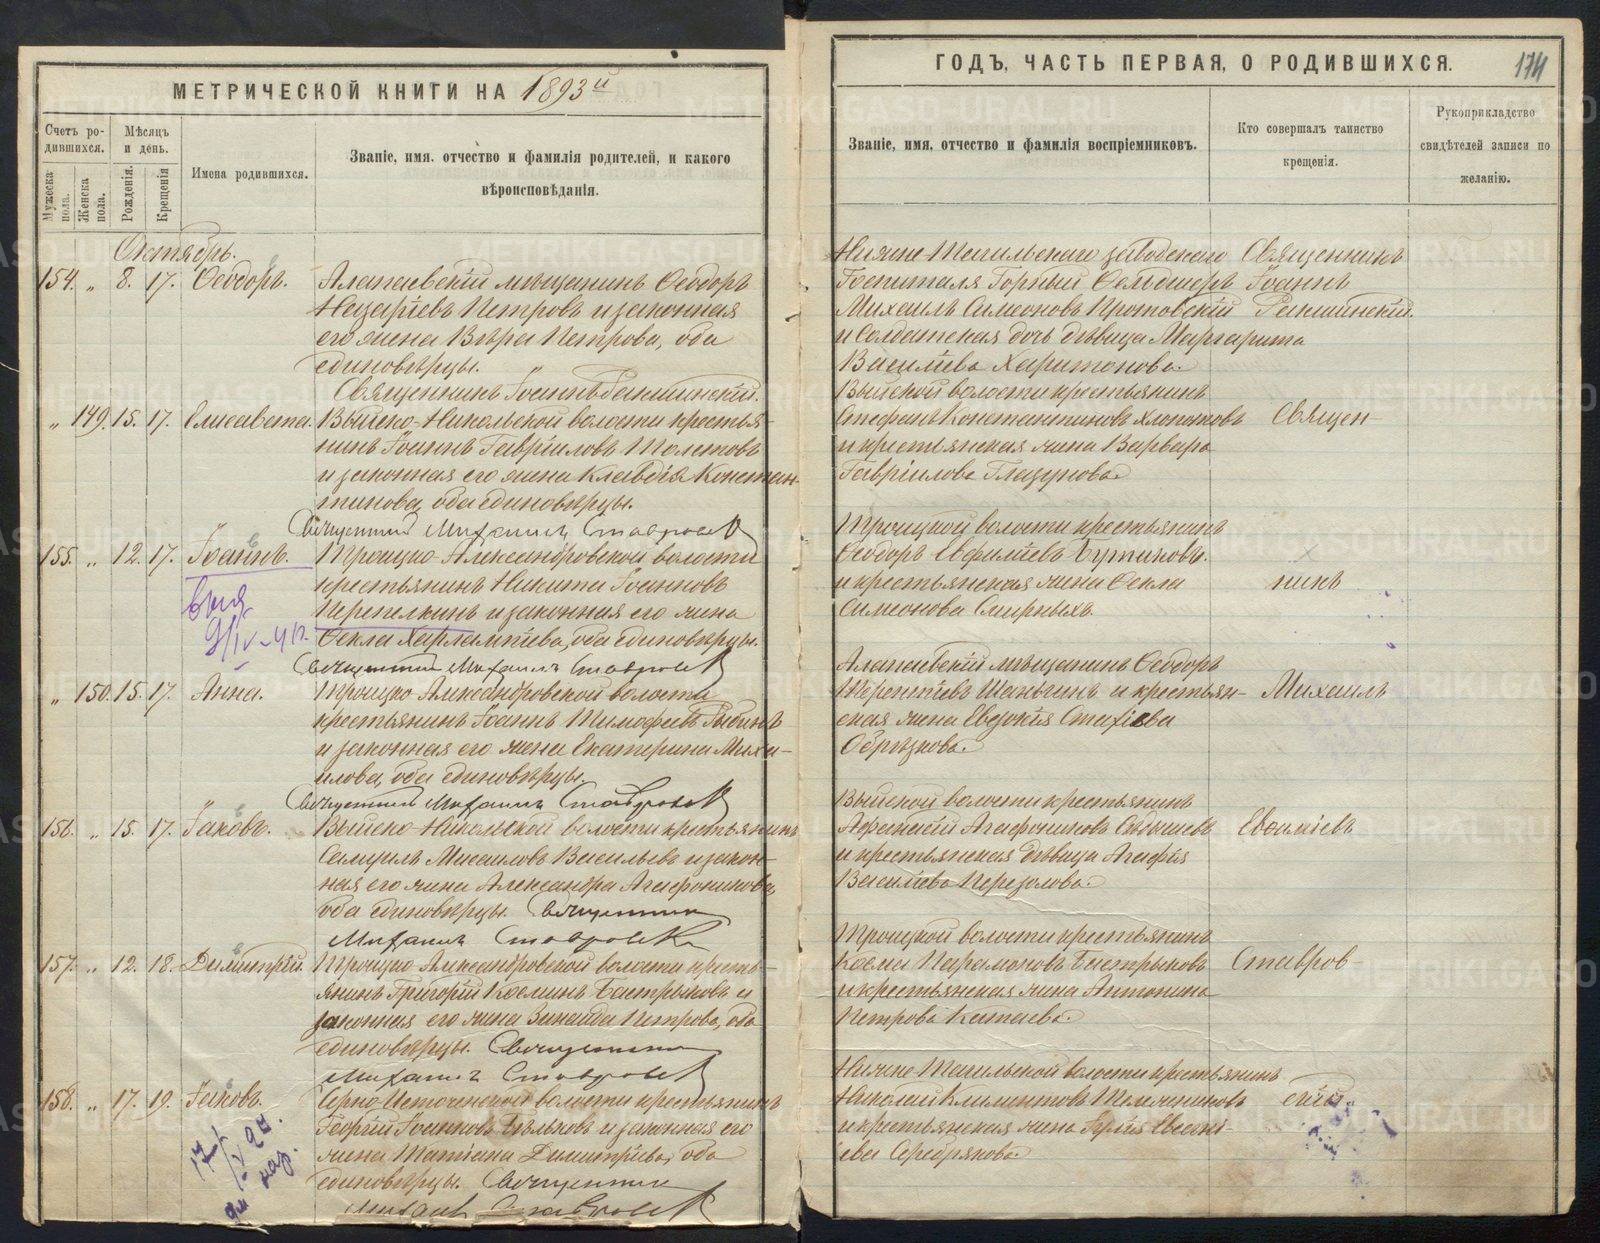 МЕТРИЧЕСКОЙ КНИГИ НА 1893й
Счетъ родившихся.
Мѣсяцъ и день.
Имена родившихся.
Званіе, имя, отчество и фамилія родителей, и какого
вѣроисповѣданія.
Мужеска пола.
Женска пола.
Рожденія.
Крещенія
Октябрь.
154. „ 8. 17. Ѳеодоръ. Алапаевскій мѣщанинъ Ѳеодоръ
Назаріевъ Петровъ и законная
его жена Вѣра Петрова, оба
единовѣрцы.
Священникъ Іоаннъ
„ 149. 15. 17. Елисавета. Выйско-Никольской волости крестья-
нинъ Іоаннъ Гавріиловъ Толстовъ
и законная его жена Клавдія Констан-
тинова, оба единовѣрцы.
Священникъ Михаилъ Ставровск
155. „ 12. 17. Іоаннъ. Троицко-Александровской волости
крестьянинъ Никита Іоанновъ
Перепелкинъ и законная его жена
Ѳекла Харлампіева, оба единовѣрцы.
Священникъ Михаилъ Ставровск
„ 150. 15. 17. Анна. Троицко-Александровской волости
крестьянинъ Іоаннъ Тимофеевъ
и законная его жена Екатерина Миха-
илова, оба единовѣрцы.
Священникъ Михаилъ Ставровск
156. „ 15. 17. Іаковъ. Выйско-Никольской волости крестьянинъ
Самуилъ Михаиловъ Васильевъ и закон-
ная его жена Александра Агафоникова,
оба единовѣрцы. Священникъ
Михаилъ Ставровск
157. „ 12. 18. Димитрій. Троицко-Александровской волости кресть-
янинъ Григорій Космины Бастрыковъ и
законная его жена Зинаида Петрова, оба
единовѣрцы. Священникъ
Михаилъ Ставровск
158. „ 17. 19. Іаковъ. Черно-Источенской волости крестьянинъ
Георгій Іоанновъ Бѣльковъ и законная его
жена Татіана Димитріева, оба
единовѣрцы. Священникъ
Михаилъ Ставровск
ГОДЪ, ЧАСТЬ ПЕРВАЯ, О РОДИВШИХСЯ.
174
Званіе, имя, отчество и фамилія воспріемниковъ.
Кто совершалъ таинство
крещенія.
Рукоприкладство
свидѣтелей записи по
желанію.
Нижне-Тагильскаго заводскаго Священникъ
Госпиталя Горный Фельдшеръ Іоаннъ
Михаилъ Симеоновъ Протовскій
и Солдатская дочь дѣвица Маргарита
Василіева Харитонова.
Выйской волости крестьянинъ
Стефанъ Константиновъ Хлопотовъ Священ-
и крестьянская жена Варвара
Гавріилова Глазунова.
Троицкой волости крестьянинъ
Ѳеодоръ Евфиміевъ Бутаковъ.
и крестьянская жена Ѳекла никъ
Симеонова Смирныхъ
Алапаевскій мѣщанинъ Ѳеодоръ
Терентіевъ Шаньгинъ и крестьян- Михаилъ
ская жена Евдокія
Обрѣзкова.
Выйской волости крестьянинъ
Агафониковъ Евѳиміевъ
и крестьянская дѣвица Агафія
Василіева Перезолова.
Троицкой волости крестьянинъ
Косма Парамоновъ Бастрыковъ Ставров-
и крестьянская жена Антонина
Петрова Катаева.
Нижне-Тагильской волости крестьянинъ
Николай Климентовъ скій.
и крестьянская жена
Серебрякова.
METRIKI.GASO-URAL.RU